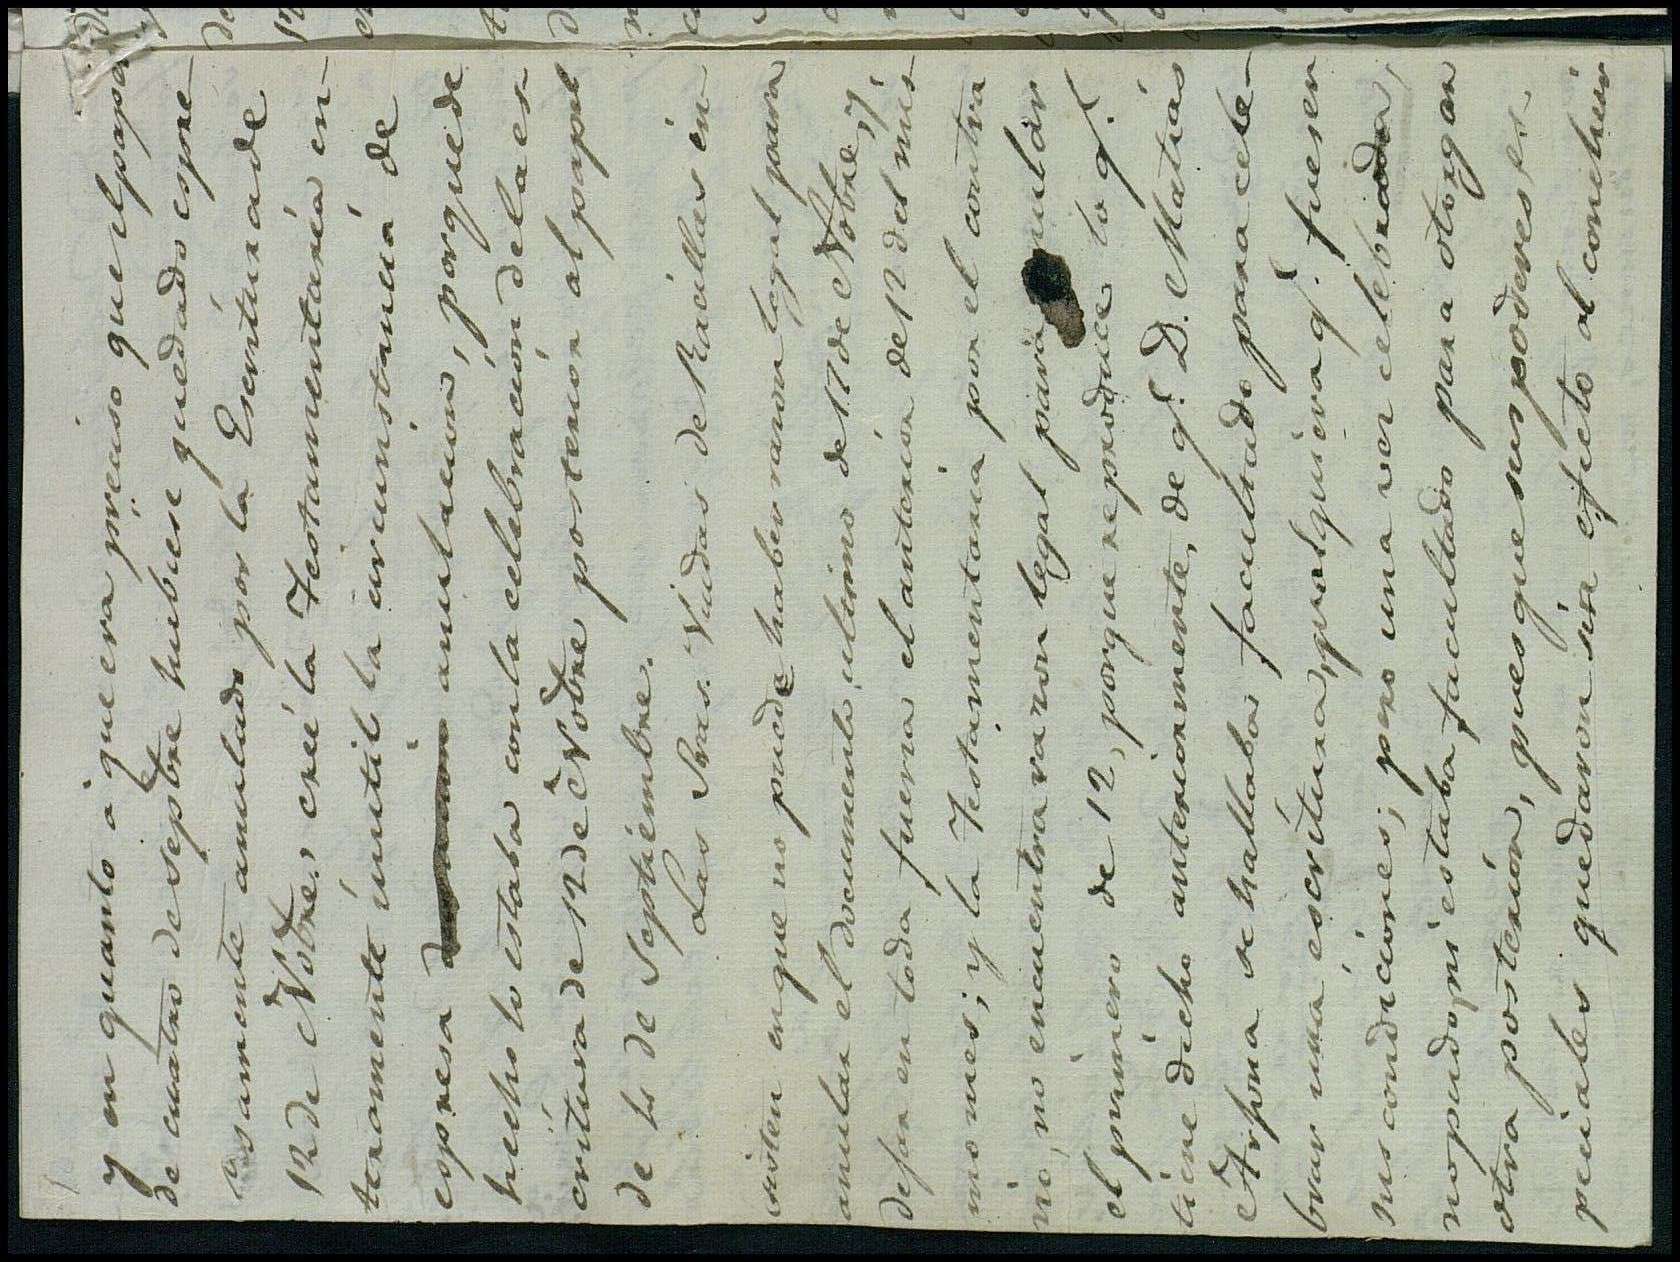 y en quanto a que era preciso que el papel
de cuatro de septbre hubiese quedado espre-
samente anulado por la Escritura de
12 de Nobre, creé la Testamentaría en-
teramente inutil la circunstancia de
espresa anulacion, porque de
hecho lo estaba con la celebracion de la es-
critura de 12 de Nobre posterior al papel
de 4 de Septiembre.
Las Sras. Viudas de Racillas in-
sisten en que no pudo haber razon legal para
anular el documento ultimo de 17 de Nobre y
dejar en toda fuerza el anterior de 12 del mis-
mo mes; y la Testamentaria por el contra
rio, no encuentra razon legal para anular
el primero de 12, porque reproduce lo q.e
tiene dicho anteriormente, de q.e D. Matias
Arpona se hallaba facultado para cele-
brar una escritura, qualquiera q.e fuesen
sus condiciones; pero una vez celebrada,
no pudo, ni estaba facultado para otorgar
otra posterior, pues que sus poderes es-
peciales quedaron sin efecto al concluir